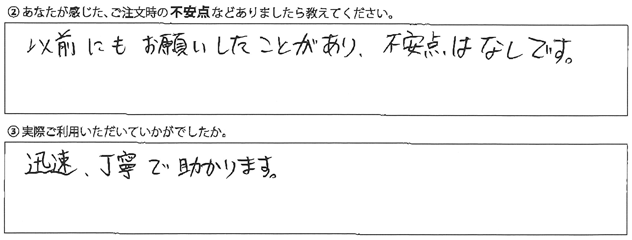 ②あなたが感じた、ご注文時の不安点などありましたら教えてください。
以前にもお願いしたことがあり、不安点はなしです。
③実際ご利用いただいていかがでしたか。
迅速、丁寧で助かります。